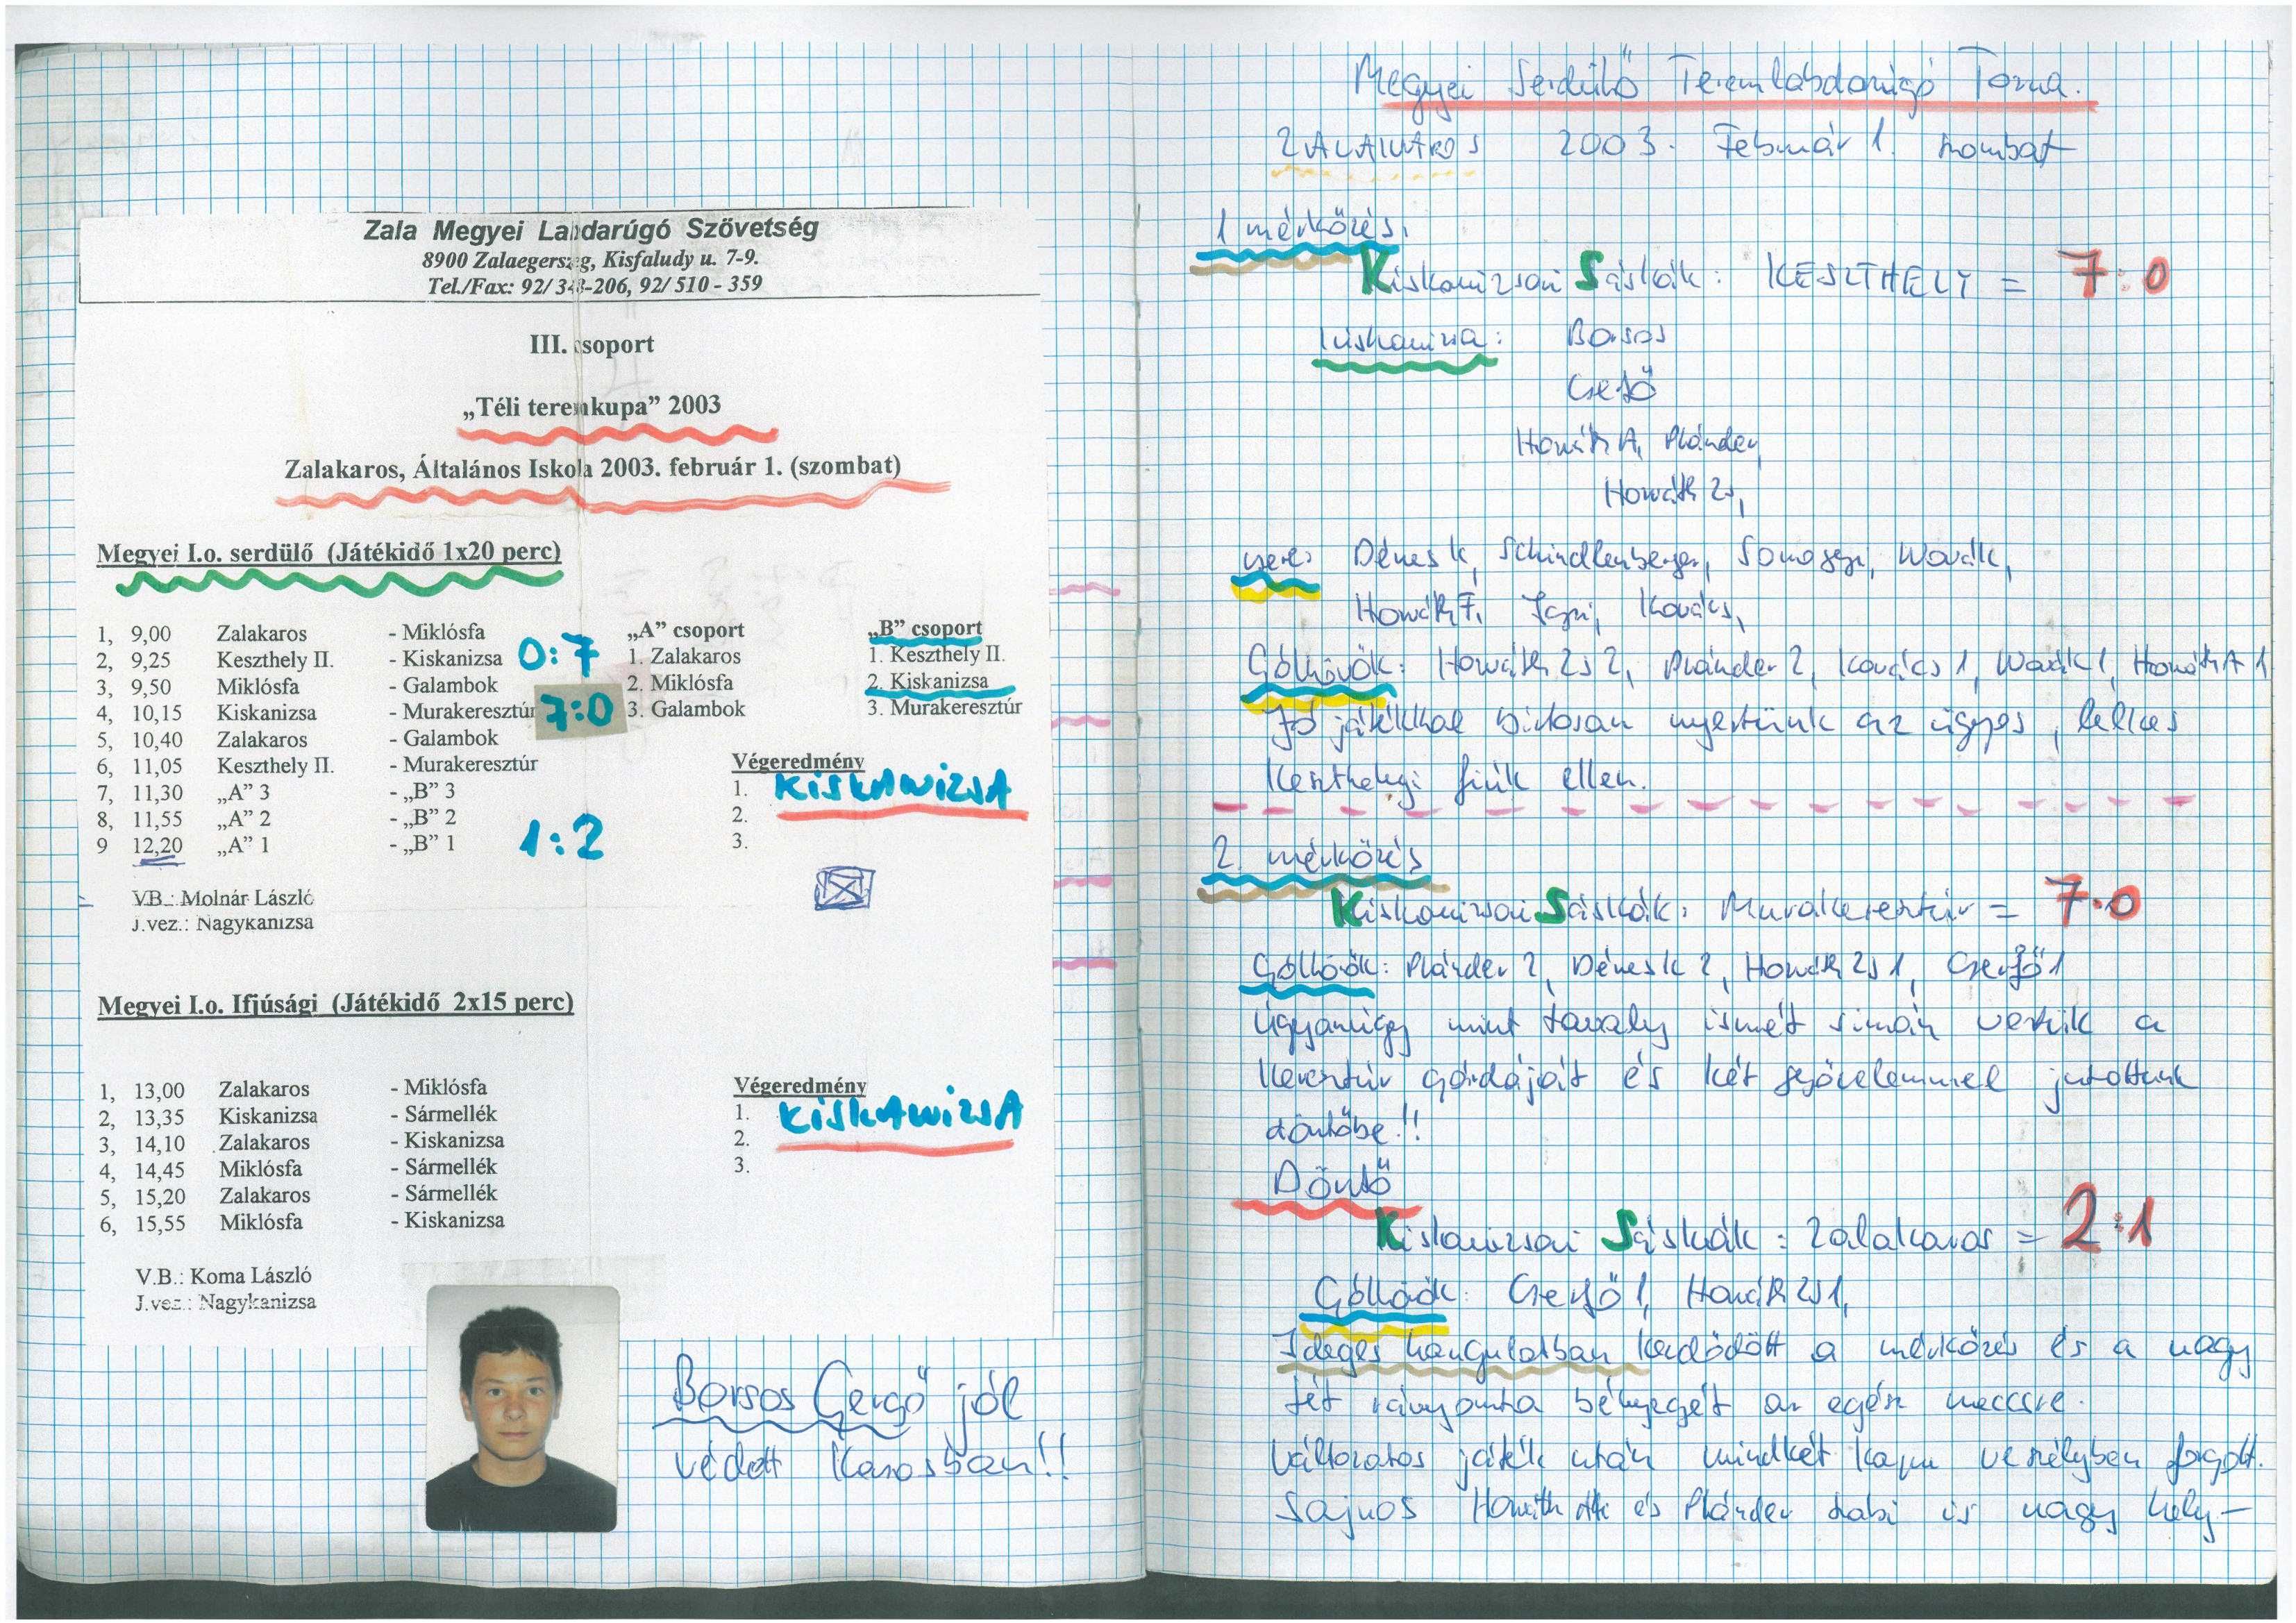 Zala Megyei Labdarúgó Szövetség
8900 Zalaegerszeg, Kisfaludy u. 7-9.
Tel./Fax: 92/ 348-206, 92/ 510 - 359
III. csoport
„Téli teremkupa” 2003
Zalakaros, Általános Iskola 2003. február 1. (szombat)
Megyei I.o. serdülő (Játékidő 1x20 perc)
1, 9,00 Zalakaros - Miklósfa
2, 9,25 Keszthely II. - Kiskanizsa 0:7
3, 9,50 Miklósfa - Galambok
4, 10,15 Kiskanizsa - Murakeresztúr 7:0
5, 10,40 Zalakaros - Galambok
6, 11,05 Keszthely II. - Murakeresztúr
7, 11,30 „A” 3 - „B” 3
8, 11,55 „A” 2 - „B” 2
9 12,20 „A” 1 - „B” 1 1:2
„A” csoport
1. Zalakaros
2. Miklósfa
3. Galambok
„B” csoport
1. Keszthely II.
2. Kiskanizsa
3. Murakeresztúr
Végeredmény
1. KiSKANiZSA
2.
3.
V.B.: Molnár László
J.vez.: Nagykanizsa
Megyei I.o. Ifjúsági (Játékidő 2x15 perc)
1, 13,00 Zalakaros - Miklósfa
2, 13,35 Kiskanizsa - Sármellék
3, 14,10 Zalakaros - Kiskanizsa
4, 14,45 Miklósfa - Sármellék
5, 15,20 Zalakaros - Sármellék
6, 15,55 Miklósfa - Kiskanizsa
Végeredmény
1. KiSKANiZSA
2.
3.
V.B.: Koma László
J.vez.: Nagykanizsa
Borsos Gergő jól
védett Karosban!!
Megyei Serdülő Teremlabdarúgó Torna.
ZALAKAROS 2003. Február 1. szombat
1 mérkőzés.
Kiskanizsai Sáskák: KESZTHELY = 7:0
Kiskanizsa: Borsos
Cserfő
Horváth A, Plánder,
Horváth Zs,
csere: Dénes K, Schindlenberger, Somogyi, Wovák,
Horváth F, Kovács,
Góllövők: Horváth Zs 2, Plánder 2, Kovács 1, Wovák 1, Horváth A 1
Jó játékkal biztosan nyertünk az ügyes, lelkes
Keszthelyi fiúk ellen.
2. mérkőzés
Kiskanizsai Sáskák: Murakeresztúr = 7:0
Góllövők: Plánder 2, Dénes K 2, Horváth Zs 1, Cserfő 1
Ugyanúgy mint tavaly ismét simán vertük a
Keresztúr gárdáját és két győzelemmel jutottunk
döntőbe!!
Döntő
Kiskanizsai Sáskák: Zalakaros = 2:1
Góllövők: Cserfő 1, Horváth Zs 1,
Ideges hangulatban kezdődött a mérkőzés és a nagy
tét rányomta bélyegét az egész meccsre.
Változatos játék után mindkét kapu veszélyben forgott.
Sajnos Horváth Ati és Plánder Szabi is nagy hely-